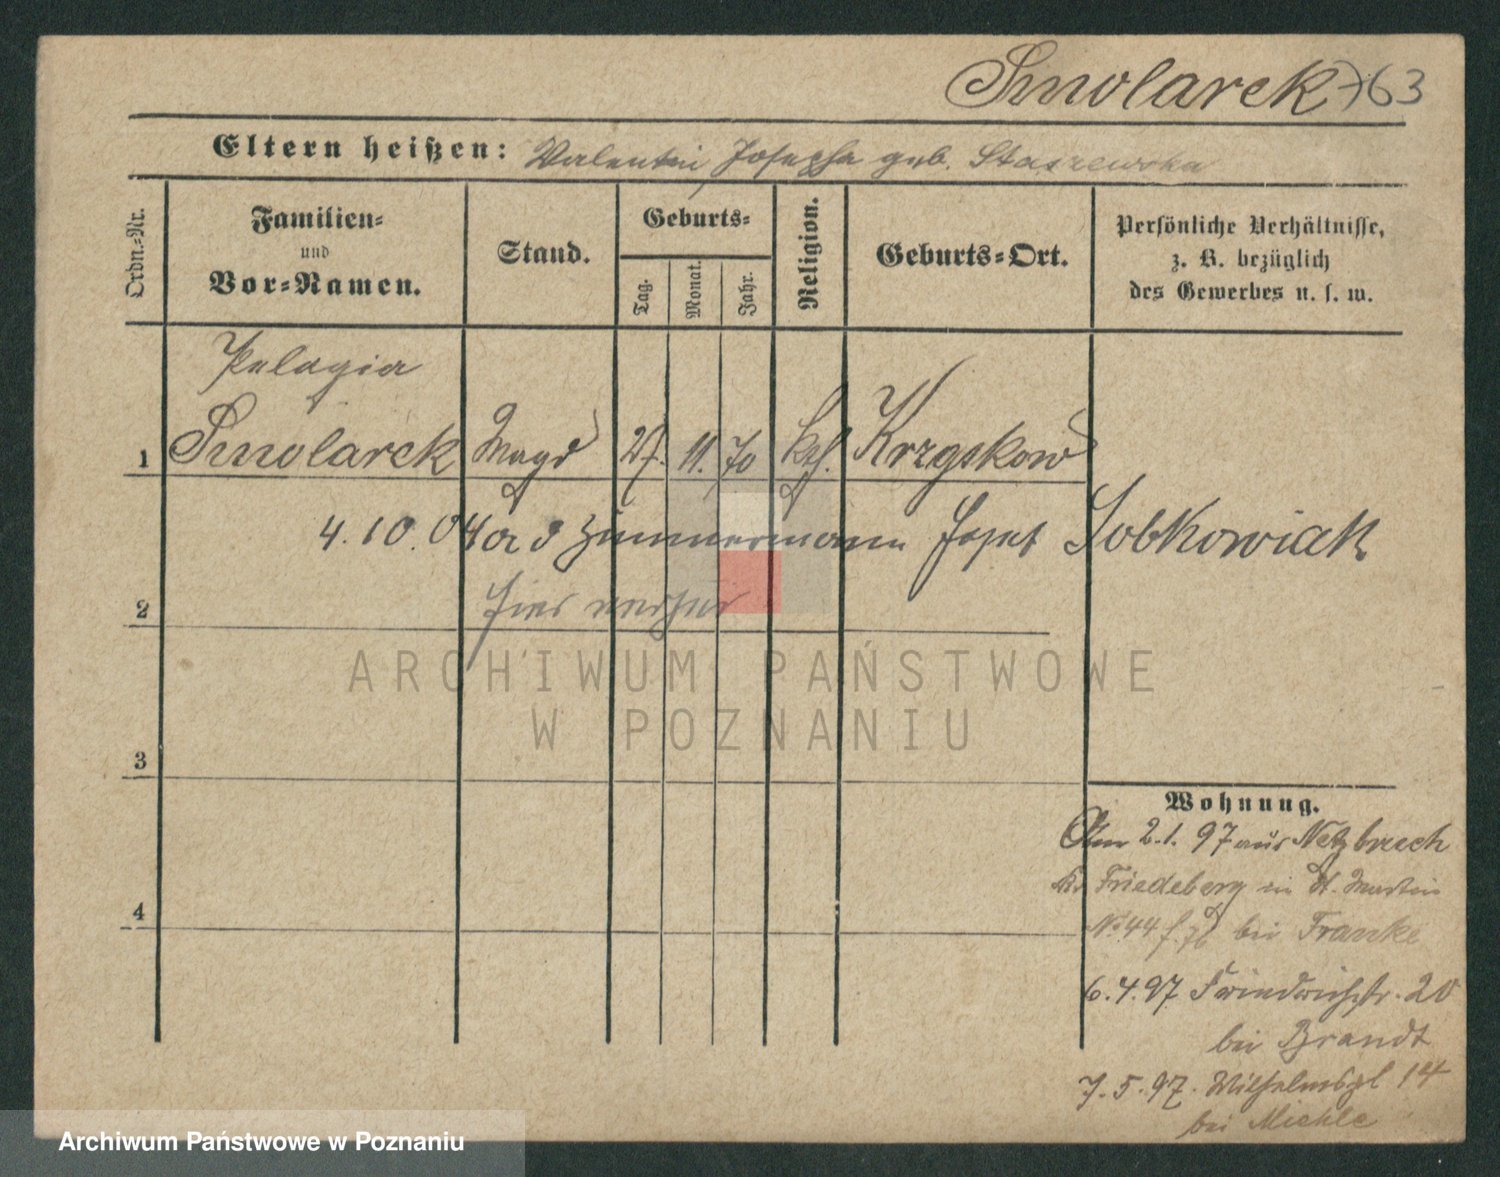 Smolarek 763
Eltern heißen: Valentin, Josepha geb. Staszewska
Ordn.-Nr.
Familien-
und
Vor-Namen.
Stand.
Geburts-
Tag.
Monat.
Jahr.
Religion.
Geburts-Ort.
Persönliche Verhältnisse,
z. B. bezüglich
des Gewerbes u. s. w.
Pelagia
1 Smolarek Magd 27. 11. 70 kth. Krzyskow
4.10.04 a d Zimmermann Josef Sobkowiak
2 hier verher
ARCHIWUM PAŃSTWOWE
W POZNANIU
3
Wohnung.
Am 2.1.97 aus Netzbruch
Kr Friedeberg in St. Martin
4 No 44 bei Franke
6.4.97 Friedrichstr. 20
bei Brandt
7.5.97. Wilhelmspl 14
bei Miehle
Archiwum Państwowe w Poznaniu